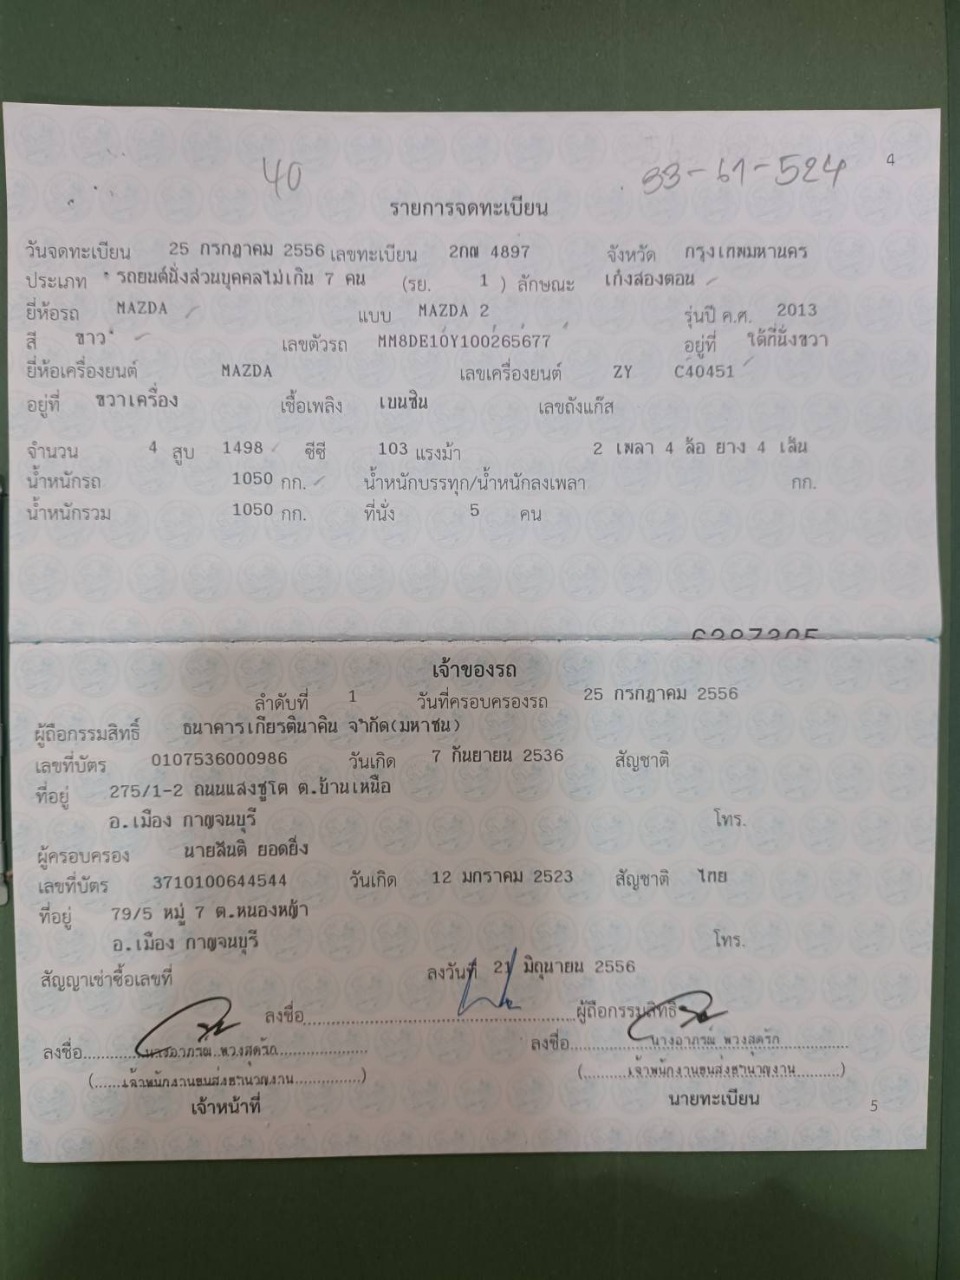 40 33-61-524 4
รายการจดทะเบียน
วันจดทะเบียน 25 กรกฎาคม 2556 เลขทะเบียน 2กฌ 4897 จังหวัด กรุงเทพมหานคร
ประเภท รถยนต์นั่งส่วนบุคคลไม่เกิน 7 คน (รย. 1 ) ลักษณะ เก๋งสองตอน
ยี่ห้อรถ MAZDA แบบ MAZDA 2 รุ่นปี ค.ศ. 2013
สี ขาว เลขตัวรถ MM8DE10Y100265677 อยู่ที่ ใต้ที่นั่งขวา
ยี่ห้อเครื่องยนต์ MAZDA เลขเครื่องยนต์ ZY C40451
อยู่ที่ ขวาเครื่อง เชื้อเพลิง เบนซิน เลขถังแก๊ส
จำนวน 4 สูบ 1498 ซีซี 103 แรงม้า 2 เพลา 4 ล้อ ยาง 4 เส้น
น้ำหนักรถ 1050 กก. น้ำหนักบรรทุก/น้ำหนักลงเพลา กก.
น้ำหนักรวม 1050 กก. ที่นั่ง 5 คน
เจ้าของรถ
ลำดับที่ 1 วันที่ครอบครองรถ 25 กรกฎาคม 2556
ผู้ถือกรรมสิทธิ์ ธนาคารเกียรตินาคิน จำกัด(มหาชน)
เลขที่บัตร 0107536000986 วันเกิด 7 กันยายน 2536 สัญชาติ
ที่อยู่ 275/1-2 ถนนแสงชูโต ต.บ้านเหนือ
อ.เมือง กาญจนบุรี โทร.
ผู้ครอบครอง นายสันติ ยอดยิ่ง
เลขที่บัตร 3710100644544 วันเกิด 12 มกราคม 2523 สัญชาติ ไทย
ที่อยู่ 79/5 หมู่ 7 ต.หนองหญ้า
อ.เมือง กาญจนบุรี โทร.
สัญญาเช่าซื้อเลขที่ ลงวันที่ 21 มิถุนายน 2556
ลงชื่อ ผู้ถือกรรมสิทธิ์
ลงชื่อ นางอาภรณ์ พวงสดรัก ลงชื่อ นางอาภรณ์ พวงสดรัก
(เจ้าพนักงานขนส่งชำนาญงาน) (เจ้าพนักงานขนส่งชำนาญงาน)
เจ้าหน้าที่ นายทะเบียน 5